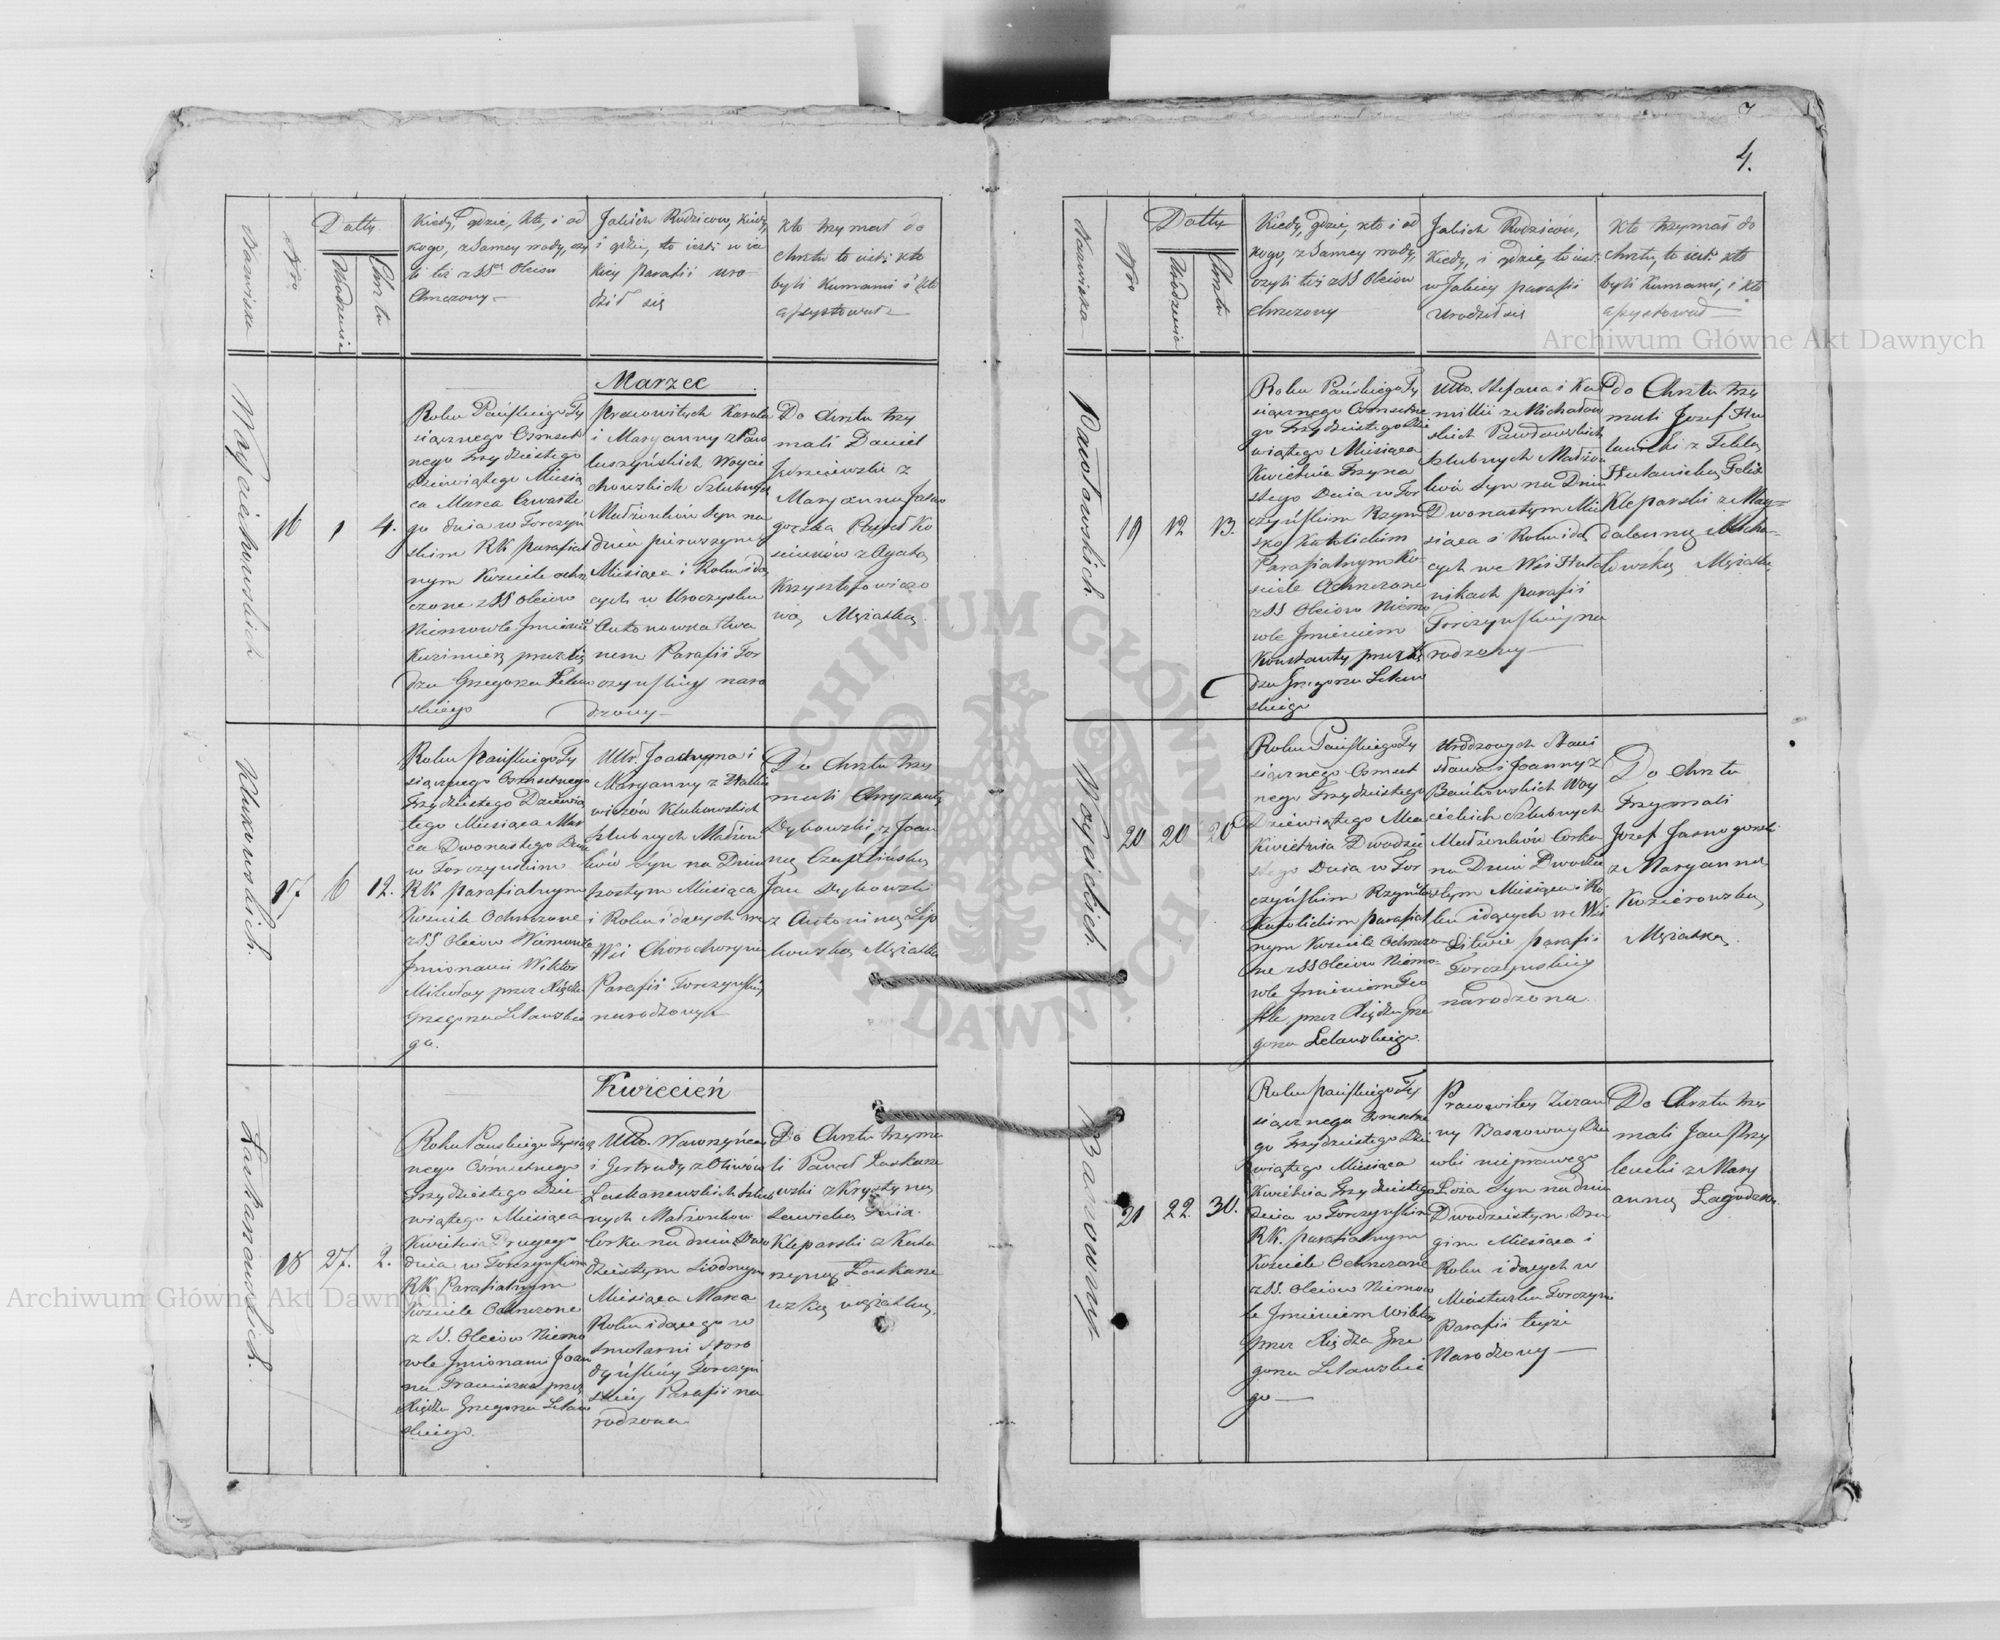 Nazwiska
Nro
Datty
Urodzenia
Chrztu
Kiedy, gdzie, kto, i od
kogo, z Samey wody, czy
li też z SS. Oleiow
Chrzczony
Jakich Rodzicow, kiedy
i gdzie, to iest: w ia
kiey parafii uro-
dził się
kto trzymał do
chrztu to iest: kto
byli Kumami i kto
assystował
Marzec
Woyciechowskich
16
1
4.
Roku Pańskiego Ty
siącznego Ośmset
nego Trzydziestego
Dziewiątego Miesią
ca Marca Czwarte
go dnia w Torczyń
skim RK parafial
nym Kościele ochrz
czone z SS Oleiow
Niemowle Jmieniem
Kazimierz przez Xię
dza Grzegorza Letaw
skiego
Pracowitych Karola
i Maryanny z Paw
luszyńskich Woycie
chowskich Szlubnych
Małżonków Syn na
dniu pierwszym
Miesiąca i Roku idą
cych w Uroczysku
Antonowka
nem Parafii Tor
czyńskiey naro
dzony
Do Chrztu trzy
mali Daniel
z
Maryanną Jasno
górską
z Agatą
Krzysztofowiczo
wą Mężatką.
Klukowskich.
17.
6
12.
Roku pańskiego Ty
siącznego Ośmsetnego
Trzydziestego Dziewią
tego Miesiąca Mar
ca Dwonastego Dnia
w Torczynskim
RK parafialnym
Kościele Ochrzczone
z SS Oleiow Niemowle
Jmionami Wiktor
Mikołay przez Xiędza
Grzegorza Letawskie
go.
Ur. Joachyma i
Maryanny z
wiczów Klukowskich
Szlubnych Małżon
ków Syn na Dniu
szostym Miesiąca
i Roku idących we
Wsi Chorochoryniu
Parafii Torczyńskiey
narodzony
Do Chrztu trzy
mali Chryzanty
Dybowski z Joan
ną Czaplińską
Jan Dybowski
z Antoniną Lip
kowską Mężatką
Kwiecień
Laskarzewskich.
18
27.
2.
Roku Panskiego Tysiącz
nego Ośmsetnego
Trzydziestego Dzie-
wiątego Miesiąca
Kwietnia Drugiego
dnia w Torczynskim
RK Parafialnym
Kościele Ochrzczone
z SS. Oleiow Niemo
wle Jmionami Joan
na Franciszka przez
Xiędza Grzegorza Letaw
skiego.
Wo. Wawrzyńca
i Gertrudy z Oliwów
Laskarzewskich Szlub
nych Małżonkow
Corka na dniu Dwu
dziestym siodmym
Miesiąca Marca
Roku idącego w
Torczyń
skiey Parafii na
rodzona
Do Chrztu trzyma
li Paweł Laskarze
wski z Krystyną
Sawicką
Kleparski z Kata
rzyną Laskarze
wską mężatką.
7
4.
Nazwiska
Nro
Datty
Urodzenia
Chrztu
Kiedy, gdzie, kto i od
kogo, z Samey wody,
czyli też z SS Oleiow
chrzczony
Jakich Rodziców,
Kiedy, i gdzie, to iest:
w Jakiey parafii
Urodził się
Kto trzymał do
chrztu, to iest: kto
byli Kumami, i kto
assystował
Pawłowskich
19
12
13.
Roku Pańskiego Ty
siącznego Ośmsetne
go Trzydziestego Dzie
wiątego Miesiąca
Kwietnia Trzyna
stego Dnia w Tor
czyńskim Rzym
sko Katolickim
Parafialnym Ko-
ściele Ochrzczone
z SS Oleiow Niemo
wle Jmieniem
Konstanty przez Xię
dza Grzegorza Letaw
skiego
Wo. Stefana i Ka
millii z Michałow
skich Pawłowskich
Szlubnych Małżon
ków Syn na Dniu
Dwonastym Mie
siąca i Roku idą
cych we Wsi Huto
nikach parafii
Torczynskiey na
rodzony
do Chrztu trzy
mali Jozef Hu
lanicki z Teklą
Hulanicką Felix
Kleparski z Mag-
daleną Micha-
łowską Mężatką
Woycickich.
20
20
20
Roku Pańskiego Ty
siącznego Ośmset
nego Trzydziestego
Dziewiątego Mca
Kwietnia Dwudzie
stego Dnia w Tor
czyńskim Rzymsko
Katolickim parafial
nym Kościele Ochrzczo-
ne z SS Oleiow Niemo-
wle Jmieniem Teo
fila, przez Xiędza Grze
gorza Letawskiego.
Urodzonych Stani
sława i Joanny z
Bańkowskich Woy
cickich Szlubnych
Małżonków Corka
na Dniu Dwudzie
stym Miesiąca i Ro
ku idących we Wsi
Litwie parafii
Torczynskiey
narodzona.
Do Chrztu
Trzymali
Jozef Jasnogorski
z Maryanną
Kozierowską
Mężatką.
Barowny
21
22.
30.
Roku pańskiego Ty
siącznego Ośmsetne
go Trzydziestego Dzie
wiątego Miesiąca
Kwietnia Trzydziestego
dnia w Torczyńskim
RK. parafialnym
Kościele Ochrzczone
z SS. Oleiow Niemow
le Jmieniem Wiktor
przez Xiędza Grze
gorza Letawskie
go
Pracowitey Zuzan
ny Barowny
nieprawego
Łoża Syn na dniu
Dwudziestym Dru
gim Miesiąca i
Roku idących w
Miasteczku Torczynie
Parafii teyże
Narodzony
Do Chrztu trzy
mali Jan Przy
łucki z Mary
anną Łagodzką.
Archiwum Główne Akt Dawnych
Archiwum Główne Akt Dawnych
ARCHIWUM GŁÓWNE AKT DAWNYCH